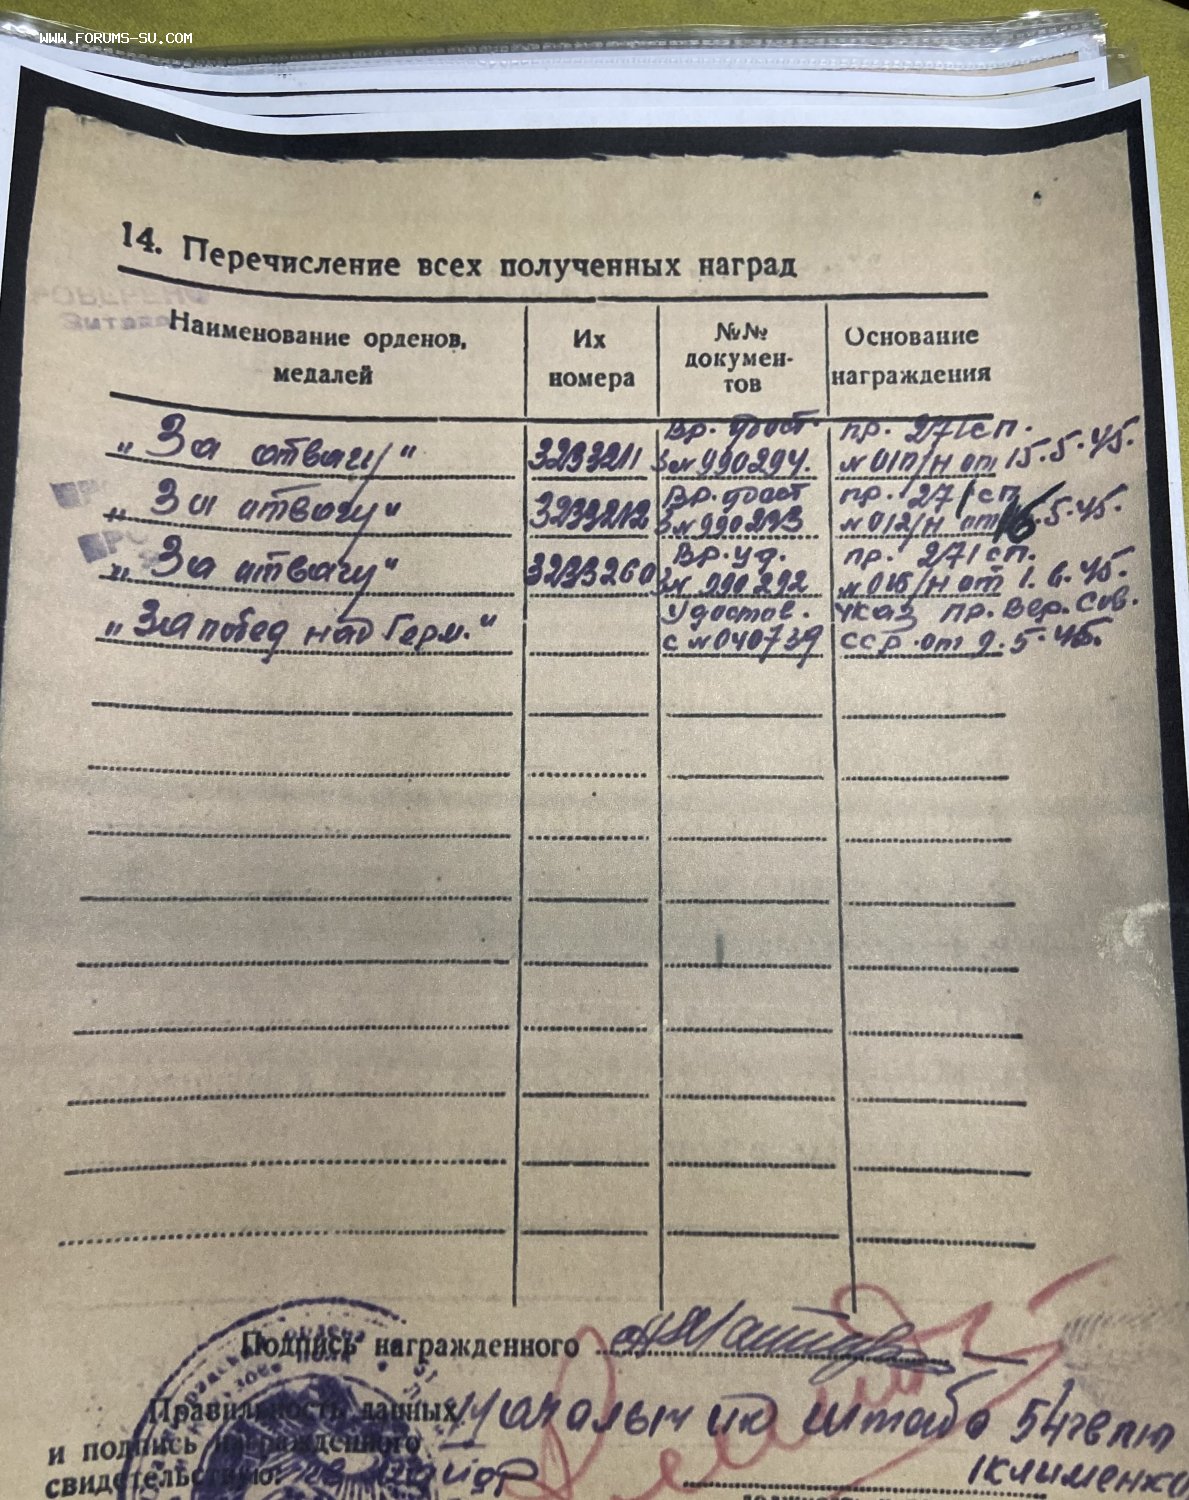 WWW.FORUMS-SU.COM
14. Перечисление всех полученных наград
Наименование орденов, медалей
Их номера
№№ документов
Основание награждения
„За отвагу“ 3233211 Вр. удост. З № 990294. пр. 271 сп. № 011/н от 15.5.45.
„За отвагу“ 3233212 Вр. удост З № 990293 пр. 271 сп № 012/н от 16.5.45.
„За отвагу“ 3233260 Вр. уд. З № 990292 пр. 271 сп. от 1.6.45.
„За побед над Герм.“ Удостов. С № 040739 Указ Пр. Вер. Сов. ССР от 9.5.45.
Подпись награжденного
Правильность данных Начальник штаба 54 гв
и подпись награжденного
свидетельствую: гв майор Клименко